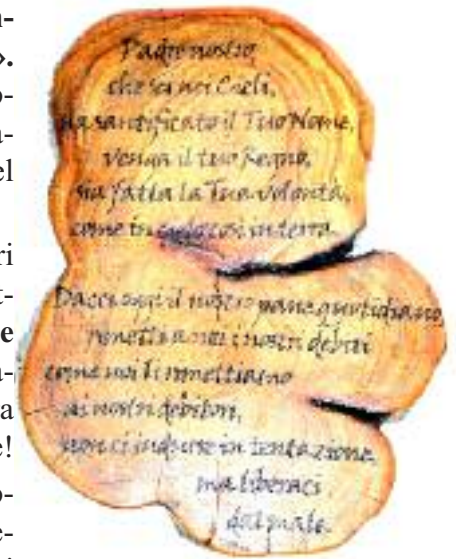 n-
».
o-
a-
el
ri
t-
e
a-
a
e!
o-
e-
Padre nostro,
che sei nei Cieli,
sia santificato il Tuo Nome,
Venga il tuo Regno,
sia fatta la Tua Volontà,
come in cielo così in terra.
Dacci oggi il nostro pane quotidiano,
rimetti a noi i nostri debiti
come noi li rimettiamo
ai nostri debitori,
non ci indurre in tentazione,
ma liberaci
dal male.